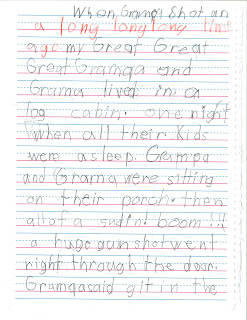 When Grampa Shot an
a long long long time
ago my Great Great
Great Grampa and
Grama lived in a
log cabin. one night
when all their kids
were asleep. Grampa
and Grama were sitting
on their porch. then
all of a suddint boom !!!
a huge gun shot went
right through the door.
Grampa said git in the